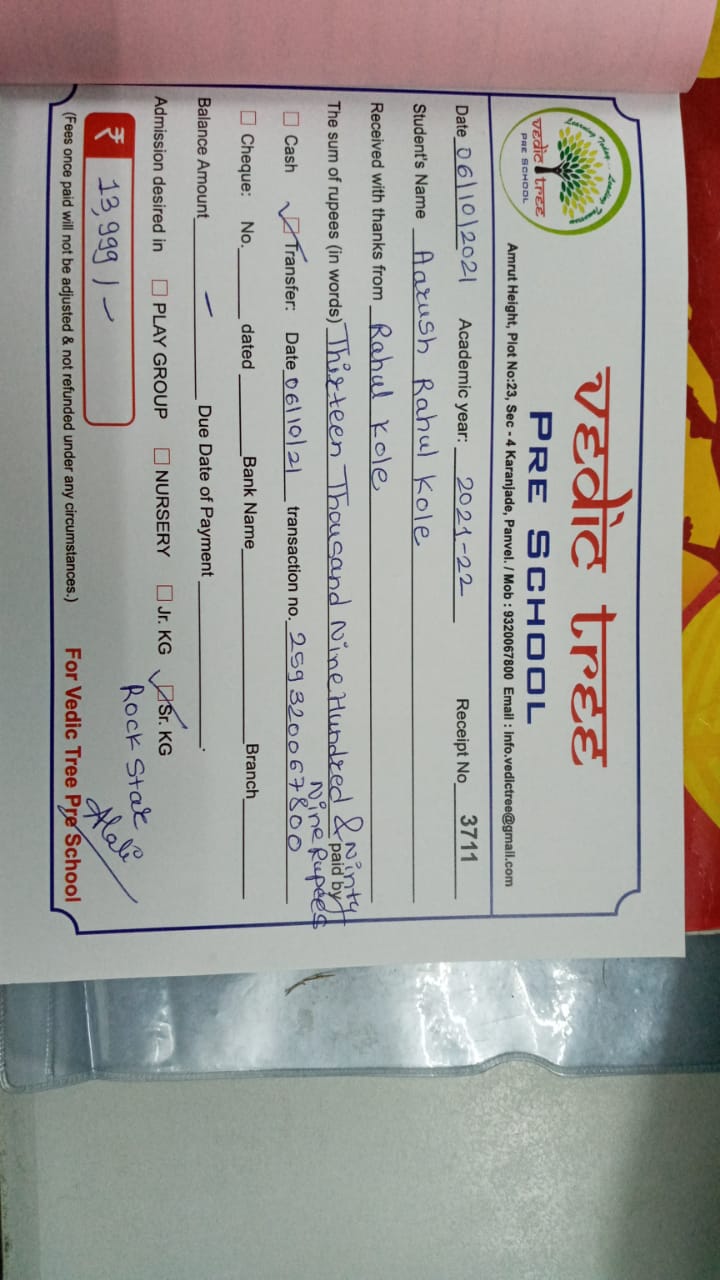 Learning Today... Leading Tomorrow
vedic tree
PRE SCHOOL
vedic tree
PRE SCHOOL
Amrut Height, Plot No:23, Sec - 4 Karanjade, Panvel. / Mob : 9320067800 Email : info.vedictree@gmail.com
Date 06/10/2021 Academic year: 2021-22 Receipt No 3711
Student's Name Aarush Rahul Kole
Received with thanks from Rahul Kole
The sum of rupees (in words) Thirteen Thousand Nine Hundred & Ninty Nine Rupees paid by
Cash Transfer: Date 06/10/21 transaction no. 259320067800
Cheque: No. dated Bank Name Branch
Balance Amount – Due Date of Payment .
Admission desired in PLAY GROUP NURSERY Jr. KG Sr. KG
Rock Star
₹ 13,999/-
(Fees once paid will not be adjusted & not refunded under any circumstances.) For Vedic Tree Pre School